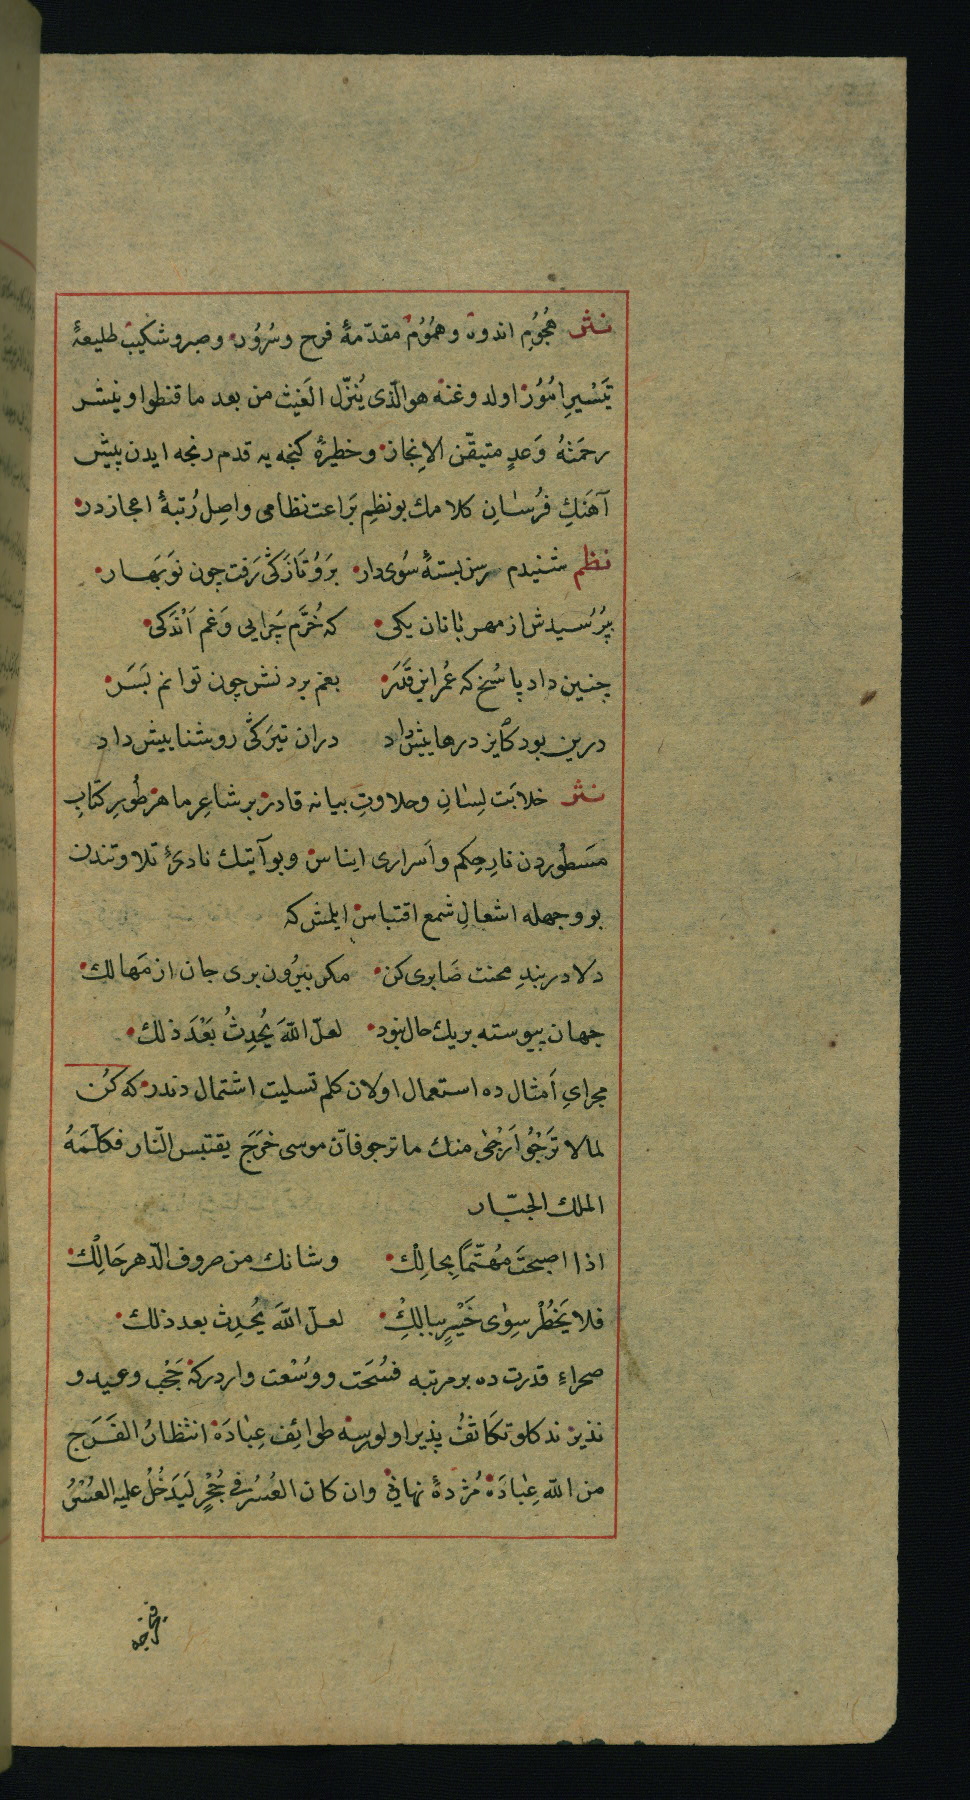 نثر هُجُومِ اندوه وهمُومُ مقدّمهٔ فرح وسُرُور وصبر وشكيب طليعهٔ
تَيْسيرِ امُوُر اولدوغنه هوالّذى يُنزّل الغَيث من بعد ما قنطوا وينشر
رحمَتهُ وَعدِ متيقّن الاِنجاز وخطيرهٔ كنجه يه قدم رنجه ايدن پيش
آهَنكِ فُرسٰانِ كلامك بو نظمِ بَراعت نظامى واصِل رُتبهٔ اعجازدر
نظم شنيدم رسن بستهٔ سُوى دار برَو تازَكى رَفت چون نوبَهار
بپُرسيدش از مهربٰانان يكى كه خُرّم چَرايى وَغم اَنْدَكى
چنين داد پاسُخ كه عُمر اين قَدَر بغم بردنش چون توانم بَسَر
درين بود كايزد رهاييش داد دران تيرَكى روشناييش داد
نثر خلابَت لِسٰانِ وحلاوتِ بيانه قادر بر شاعِر ماهر طُورِ كتابِ
مسَطُوردن نارِ حِكم واَسرارى ايناس وبو آيتك نادىٔ تلاوتندن
بو وجهله اشعالِ شمع اقتباس ايلمش كه
دلا در بندِ محنت صَابرى كن مكر بيرُون برى جان از مَهالك
جهان پيوسته بر يك حال نبود لعلّ اللّهَ يُحدِثُ بَعْدَ ذلك
مجراىِ اَمثال ده استعمال اولان كلم تسليت اشتمال دندر كه كُن
لما لا تَرَجُو اَرْجٰى منك ما ترجو فانّ موسى خرَجَ يقتبس النّار فكلّمَهُ
الملك الجبّار
اذا اصبحتَ مُهتّماً بِحالِكْ وشانك من صروف الدّهر حَالِكْ
فلا يَخطُرْ سِوٰى خَيْرٍ ببالِكْ لعلّ اللّهَ يُحدِث بعد ذلك
صحراءِ قدرت ده بر مرتبه فُسحَت ووسُعْت واردركه حُجُب وعبيد و
نذير ند كاو تكاثفُ پذير اولورسه طوائِف عِبٰادَه انتظارُ الفَرَج
من اللّه عِبٰادَة مُژدهٔ نهانى وان كان العُسْرُ فى جُحْرٍ لَيَدَخُلُ عليه العُسْرُ